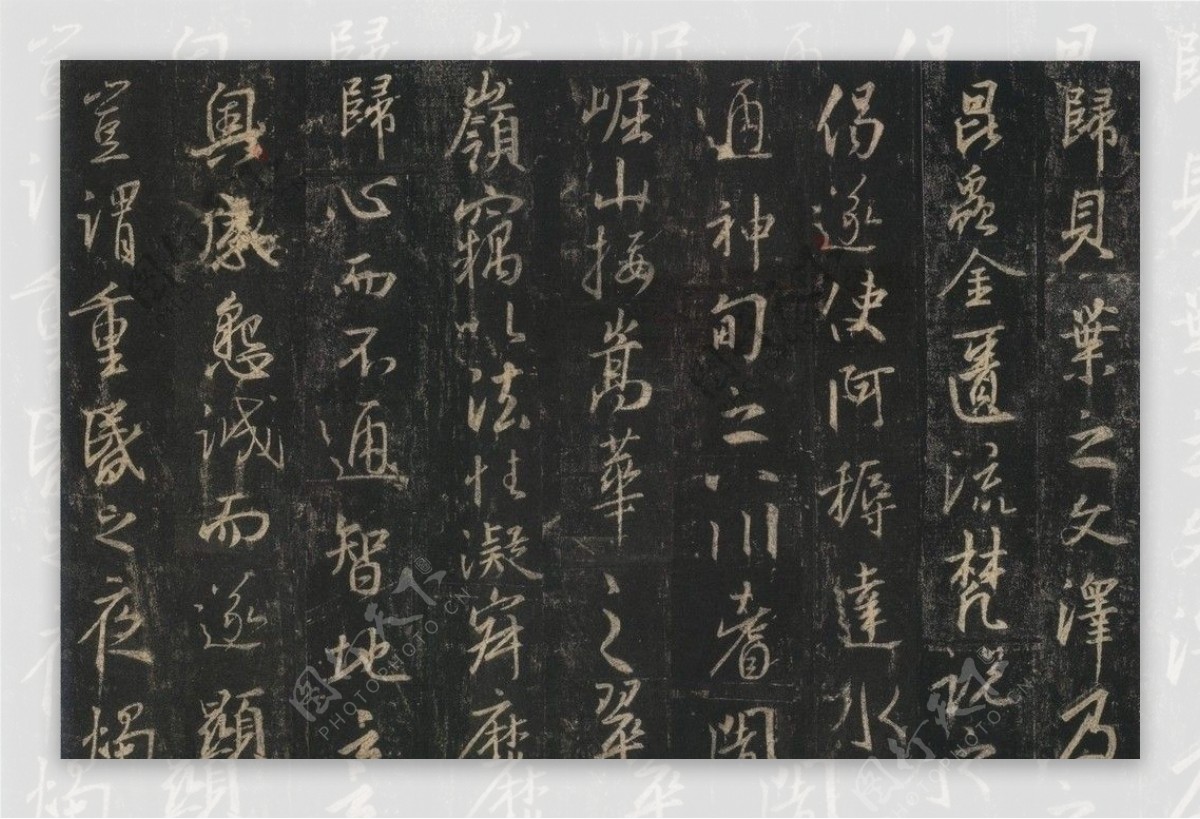 歸貝葉之文澤及
昆蟲金匱流梵說之
偈遂使阿耨達水
通神甸之八川耆闍
崛山接嵩華之翠
嶺竊以法性凝寂靡
歸心而不通智地玄
奧感懇誠而遂顯
豈謂重昏之夜燭
图行天下
PHOTOPHOTO.CN